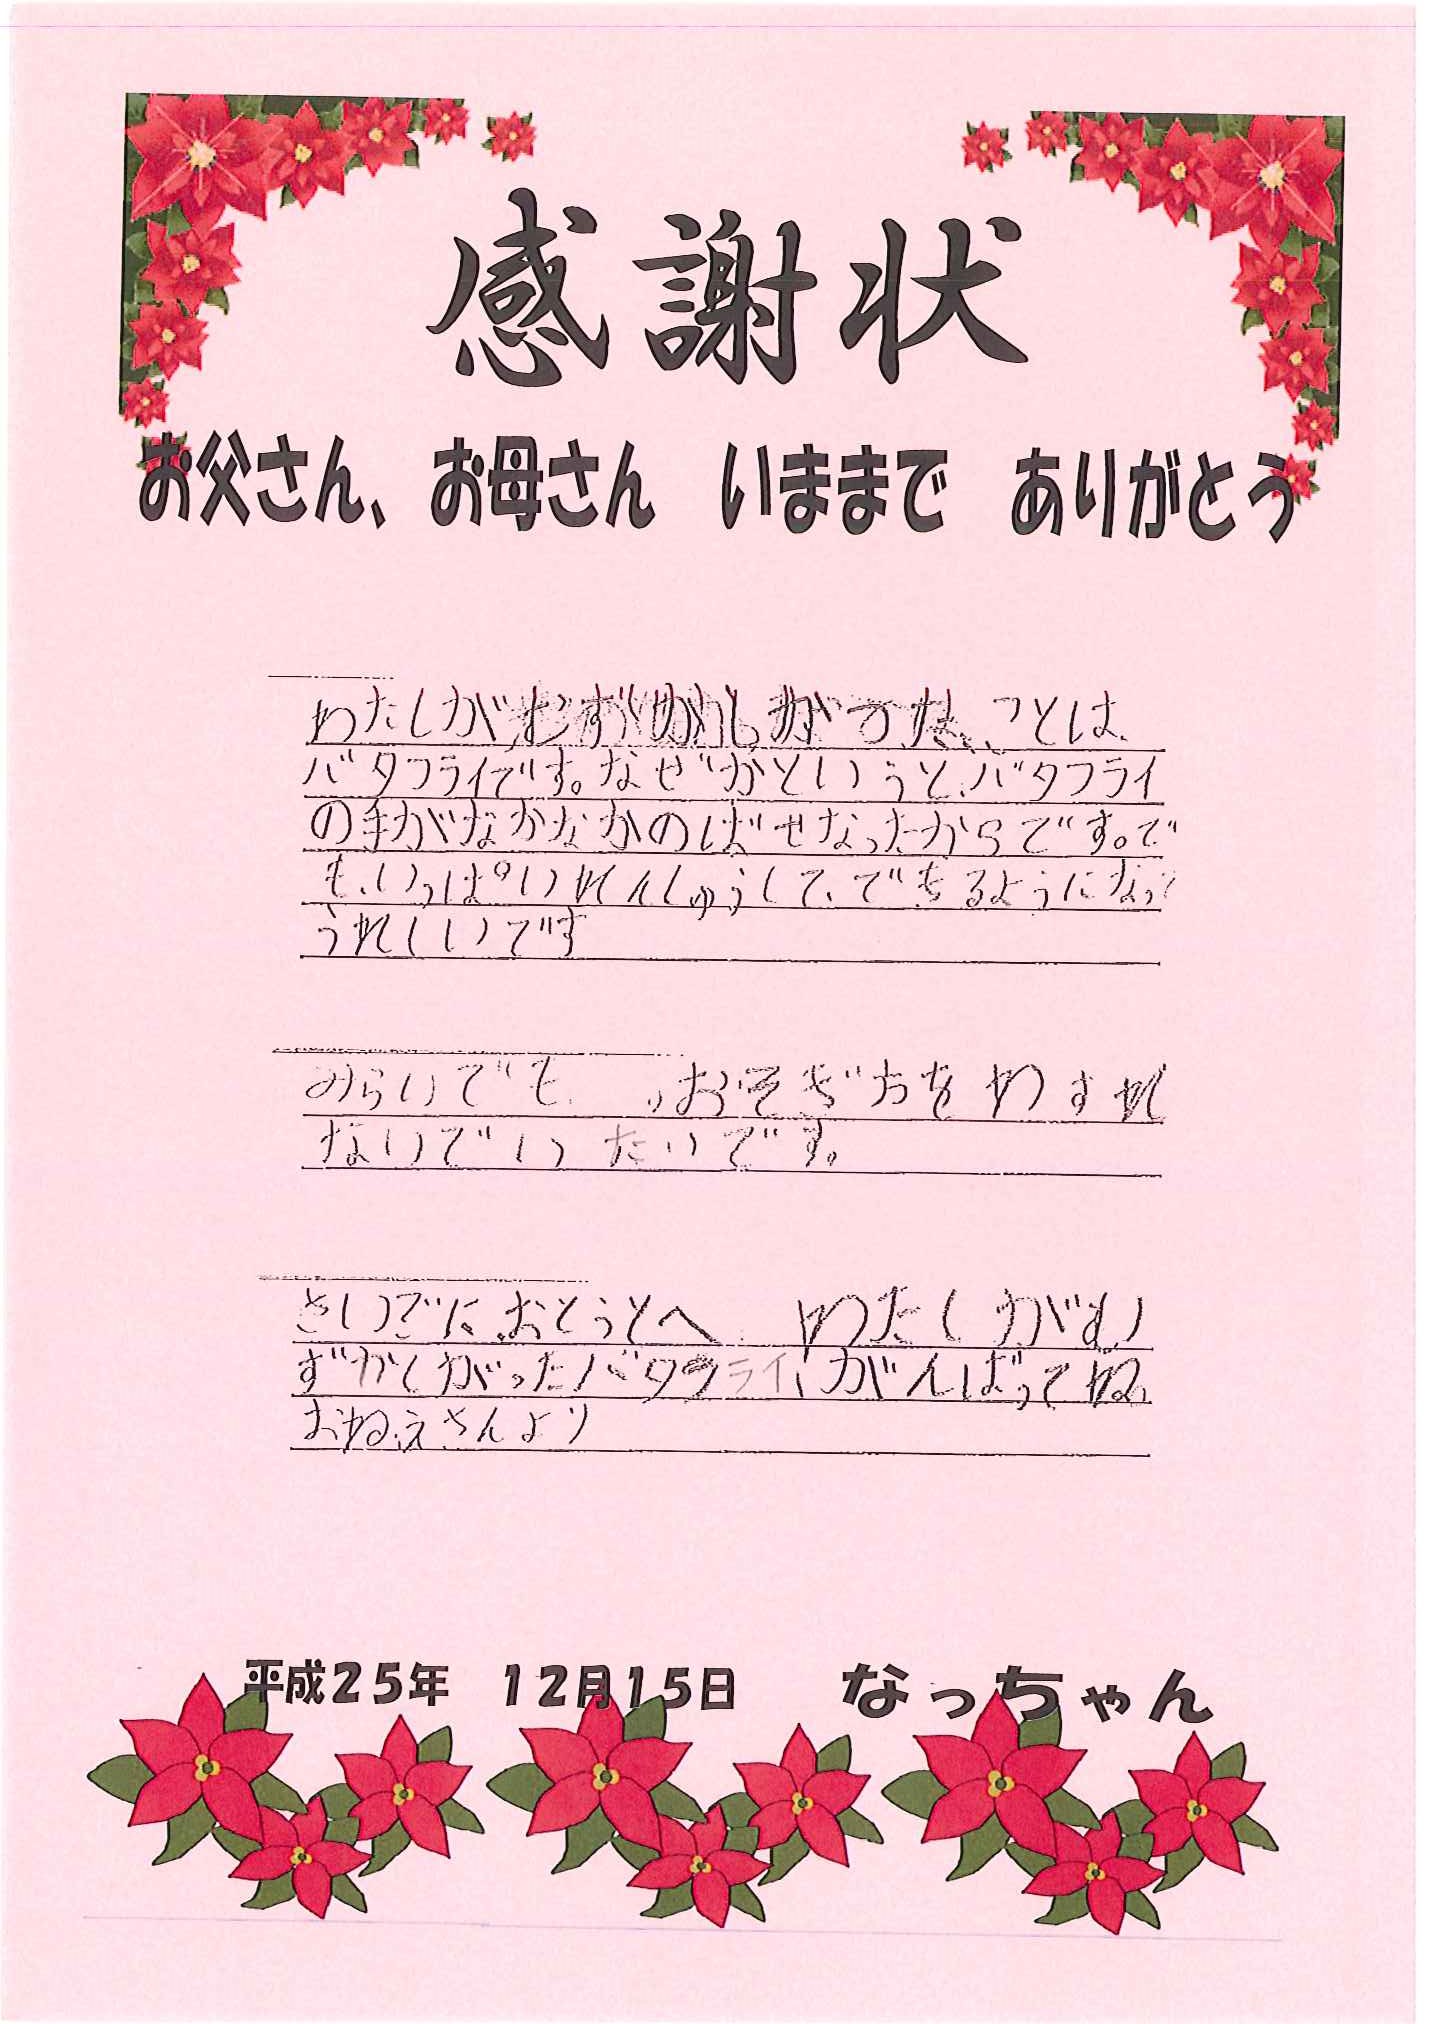 感謝状
お父さん、お母さん　いままで　ありがとう
わたしが、むずかしかった、ことは、
バタフライです。なぜかというと、バタフライ
の手がなかなかのばせなったからです。で
も、いっぱいれんしゅうして、できるようになって
うれしいです
みらいでも、およぎ方をわすれ
ないでいたいです。
さいごに、おとうとへ　わたしがむ
ずかしがったバタフライ、がんばってね。
おねえさんより
平成25年　12月15日　なっちゃん